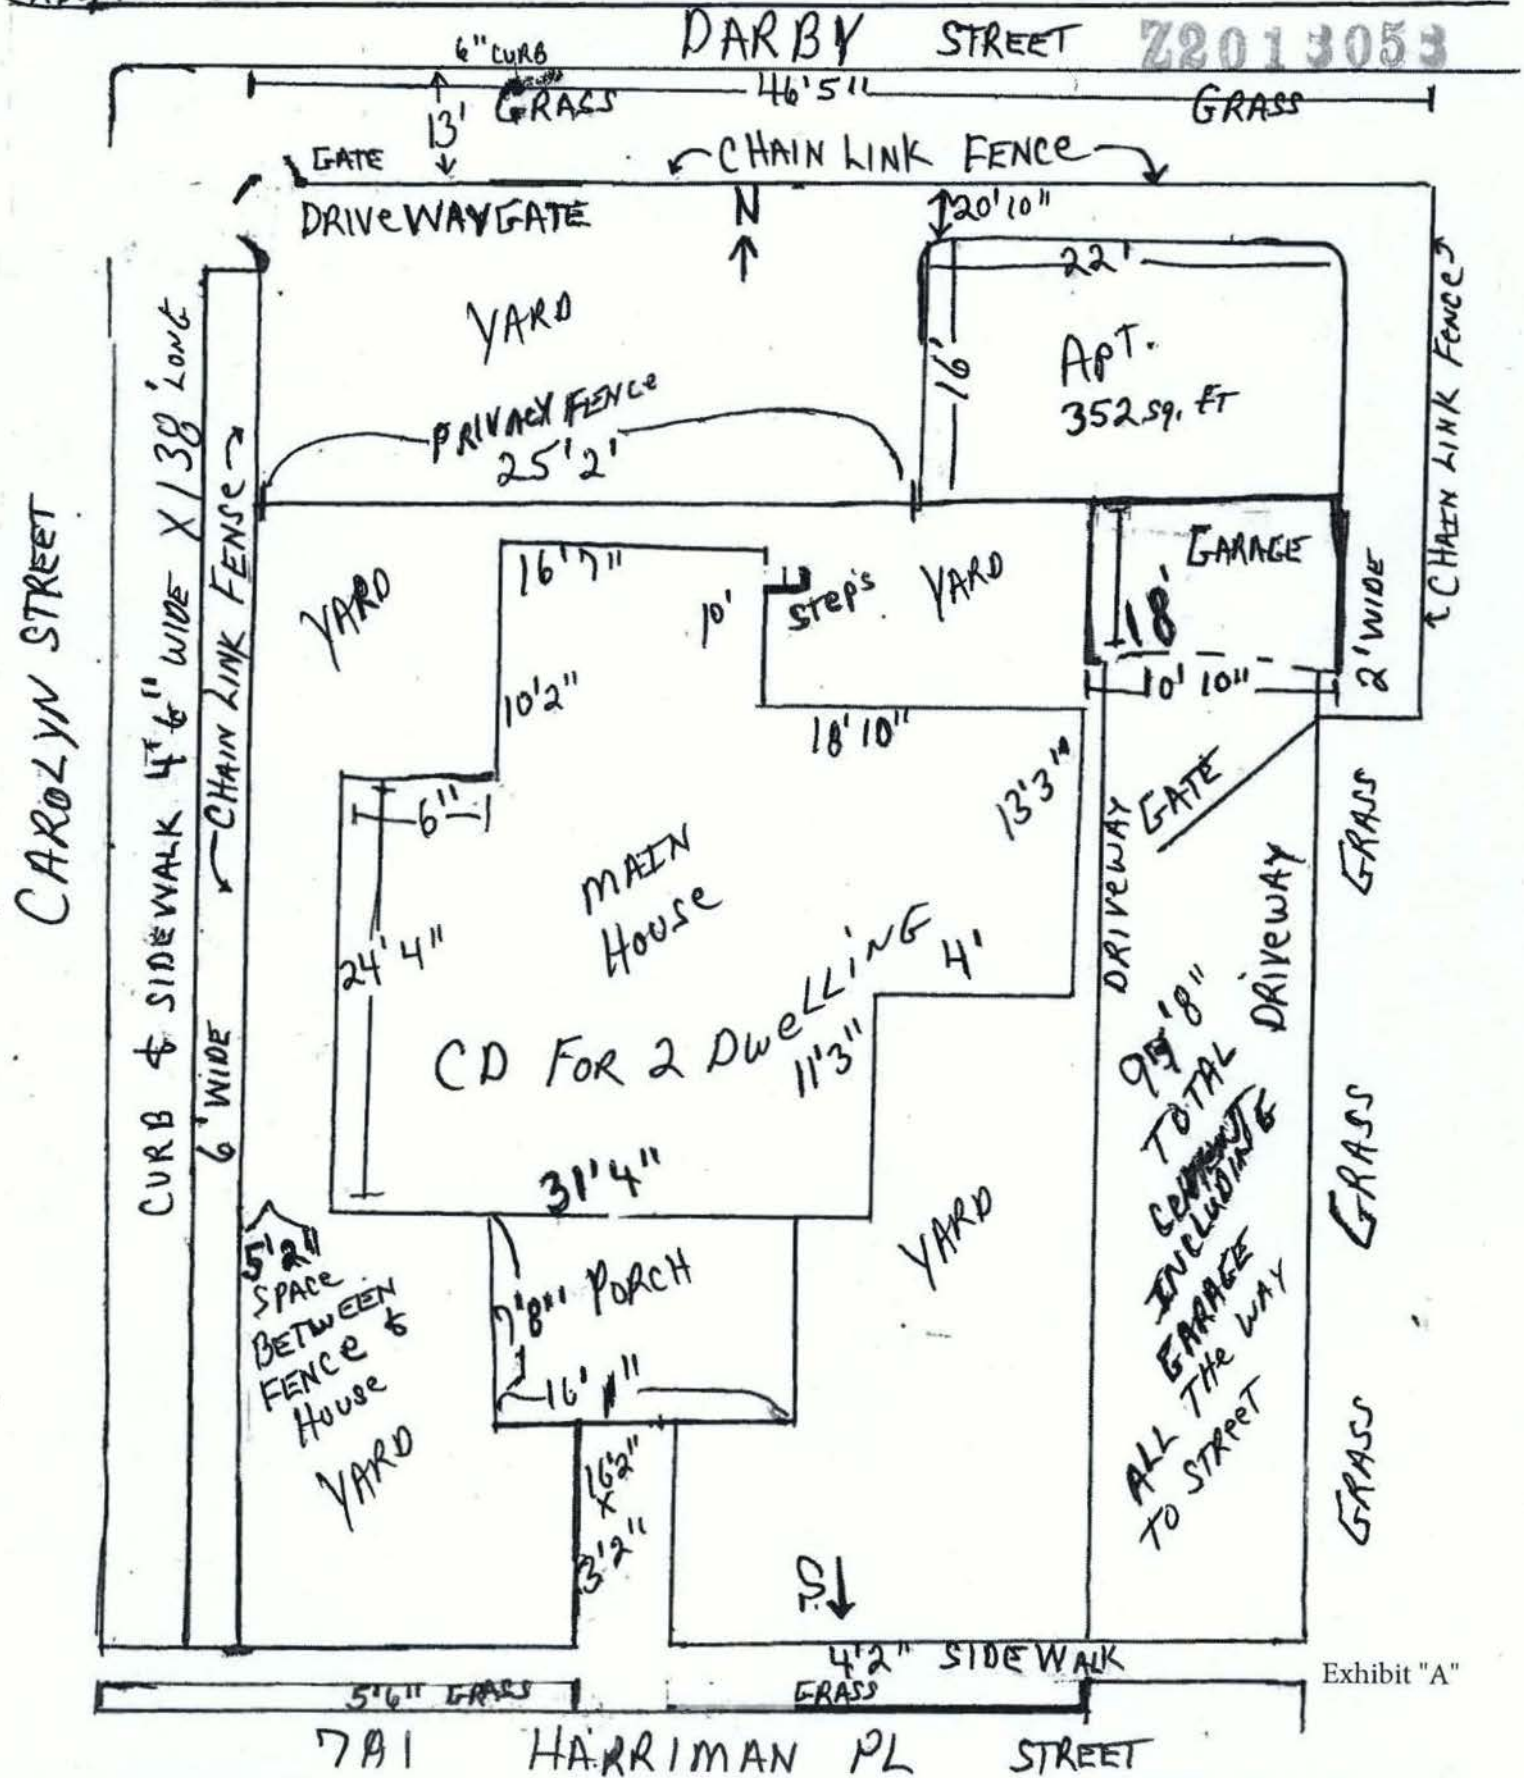 DARBY STREET Z2013053
6" CURB
46'5"
GRASS
GRASS
13'
GATE
CHAIN LINK FENCE
DRIVEWAY GATE
N
20'10"
22'
YARD
16'
APT.
352 SQ. FT
CHAIN LINK FENCE
PRIVACY FENCE
25'2'
CAROLYN STREET
CURB & SIDEWALK 4'6" WIDE X 138' LONG
CHAIN LINK FENSE
6' WIDE
YARD
16'7"
10'
STEP'S
YARD
GARAGE
18'
10' 10"
2' WIDE
10'2"
18'10"
13'3"
6"
24'4"
MAIN
HOUSE
CD FOR 2 DWELLING
4'
11'3"
31'4"
DRIVEWAY
GATE
DRIVEWAY
GRASS
GRASS
GRASS
'8"
TOTAL
INCLUDING
GARAGE
ALL THE WAY
TO STREET
5'2"
SPACE
BETWEEN
FENCE &
HOUSE
YARD
7'8"
PORCH
16' 1"
YARD
16'2"
X
3'2"
S
4'2" SIDEWALK
Exhibit "A"
5'6" GRASS
GRASS
HARRIMAN PL STREET